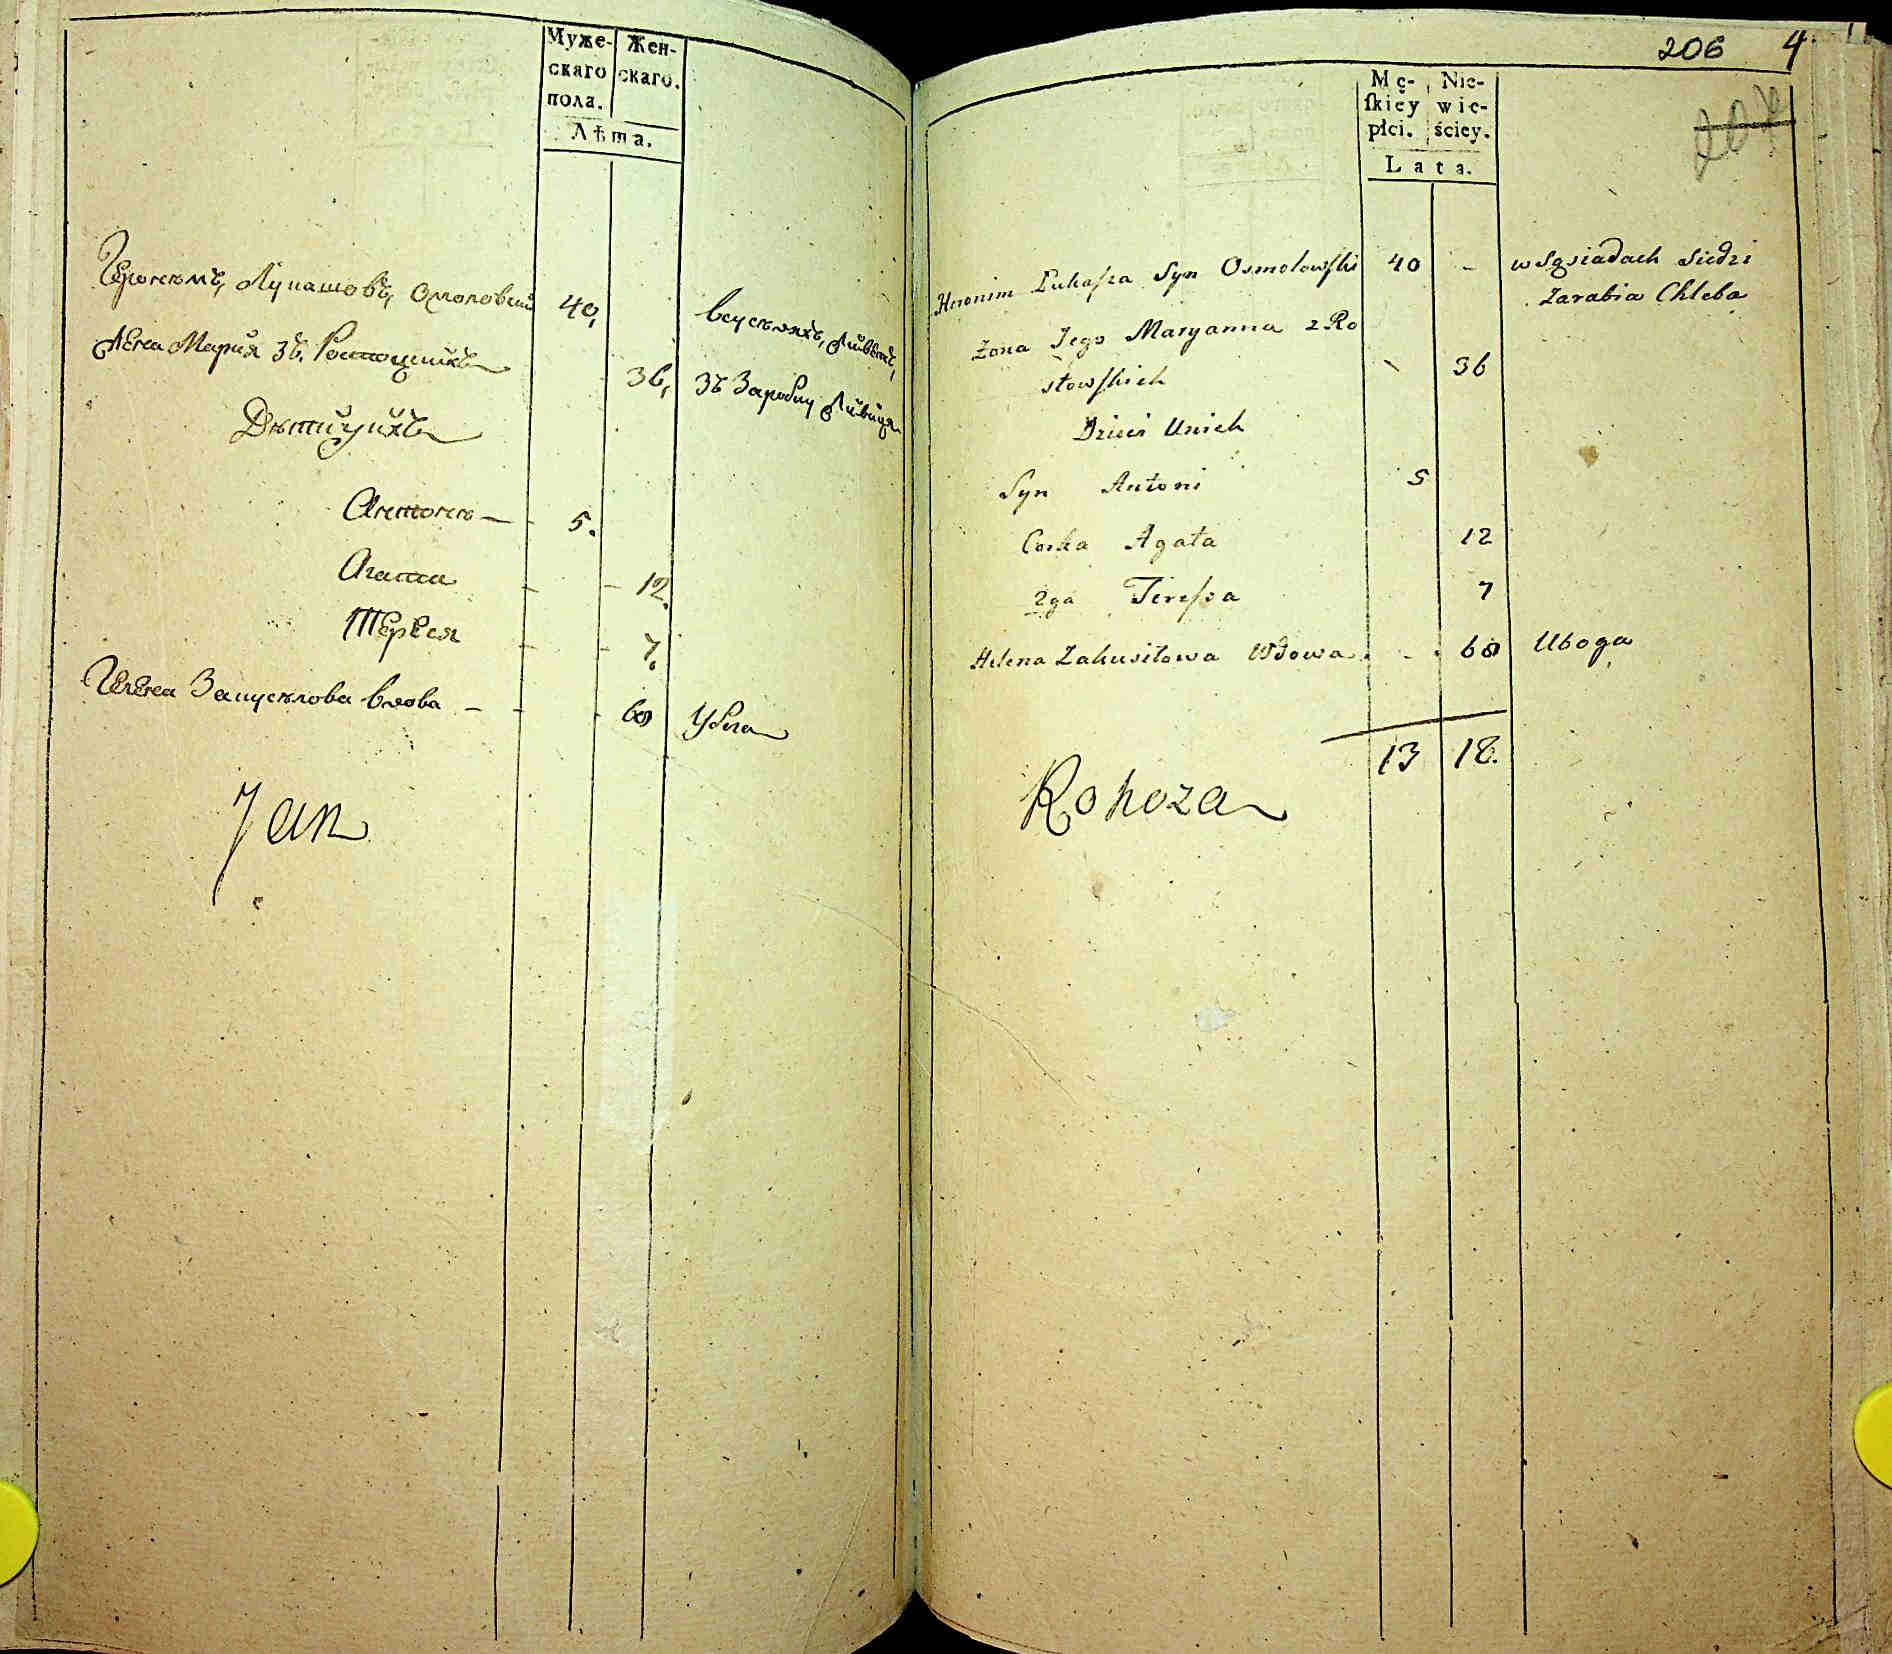 Муже- Жен-
скаго скаго.
пола.
Лѣта.
Иеронимъ, Лукашовъ, Осмоловский 40, всусѣдяхъ, живѣтъ,
Жена Мария зъ 36, зъ Заробку живица
Дѣти ихъ
Антони — 5.
Агата - - 12.
Тереся - - 7.
Елена Закусилова вдова - - - 60 Убога
Jan
206 4
Mę- Nie-
ſkiey wie-
płci. ściey.
Lata.
Heronim Łukaſza Syn Osmolowſki 40 - w Sąsiadach Siedzi
Zarabia Chleba
Zona Jego Maryanna z Ro
stowſkich - 36
Dzieci Unich
Syn Antoni 5
Corka Agata 12
2ga Tereſsa 7
Helena Zakusiłowa Wdowa . - . 60 Uboga
13 18.
Rohoza